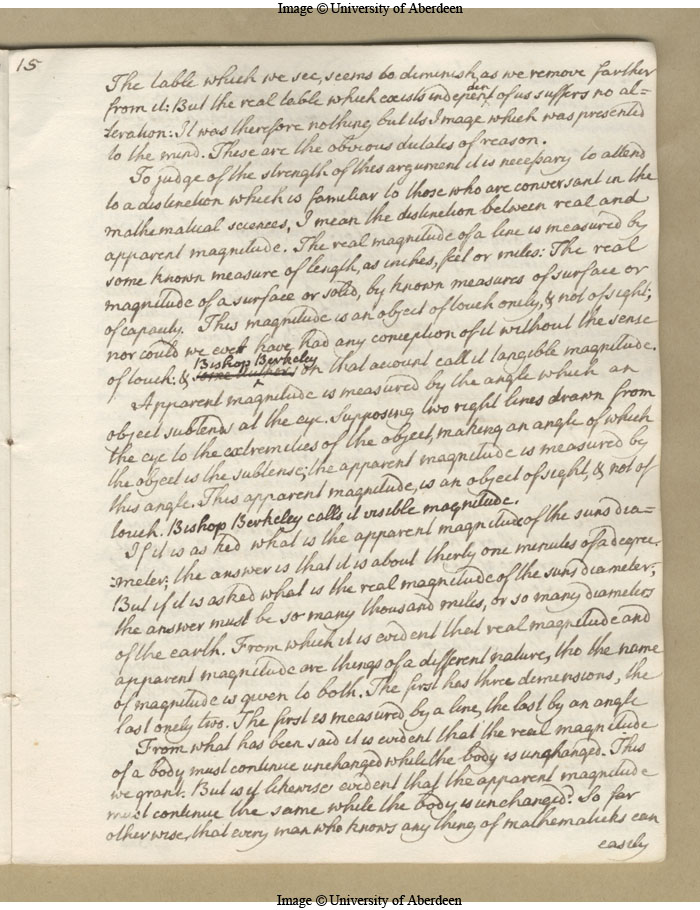 Image © University of Aberdeen
15
The table which we see, seems to diminish, as we remove farther
from it: But the real table which exists independent of us suffers no al=
teration: It was therefore nothing but its Image which was presented
to the mind. These are the obvious dictates of reason.
To judge of the strength of this argument it is necessary to attend
to a distinction which is familiar to those who are conversant in the
mathematical sciences, I mean the distinction between real and
apparent magnitude. The real magnitude of a line is measured by
some known measure of length, as inches, feet or miles: The real
magnitude of a surface or solid, by known measures of surface or
of capacity. This magnitude is an object of touch onely, & not of sight;
nor could we even have had any conception of it without the sense
Bishop Berkeley
of touch: & some Authors on that account call it tangible magnitude.
Apparent magnitude is measured by the angle which an
object subtends at the eye. Supposing two right lines drawn from
the eye to the extremities of the object, making an angle of which
the object is the subtense; the apparent magnitude is measured by
this angle. This apparent magnitude, is an object of sight, & not of
touch. Bishop Berkeley calls it visible magnitude.
If it is asked what is the apparent magnitude of the suns dia=
:meter; the answer is that it is about thirty one minutes of a degree.
But if it is asked what is the real magnitude of the suns diameter;
the answer must be so many thousand miles, or so many diameters
of the earth. From which it is evident that real magnitude and
apparent magnitude are things of a different nature, tho the name
of magnitude is given to both. The first has three dimensions, the
last onely two. The first is measured by a line, the last by an angle
From what has been said it is evident that the real magnitude
of a body must continue unchanged while the body is unchanged. This
we grant. But is it likewise evident that the apparent magnitude
must continue the same while the body is unchanged? So far
otherwise, that every man who knows any thing of mathematicks can
easily
Image © University of Aberdeen